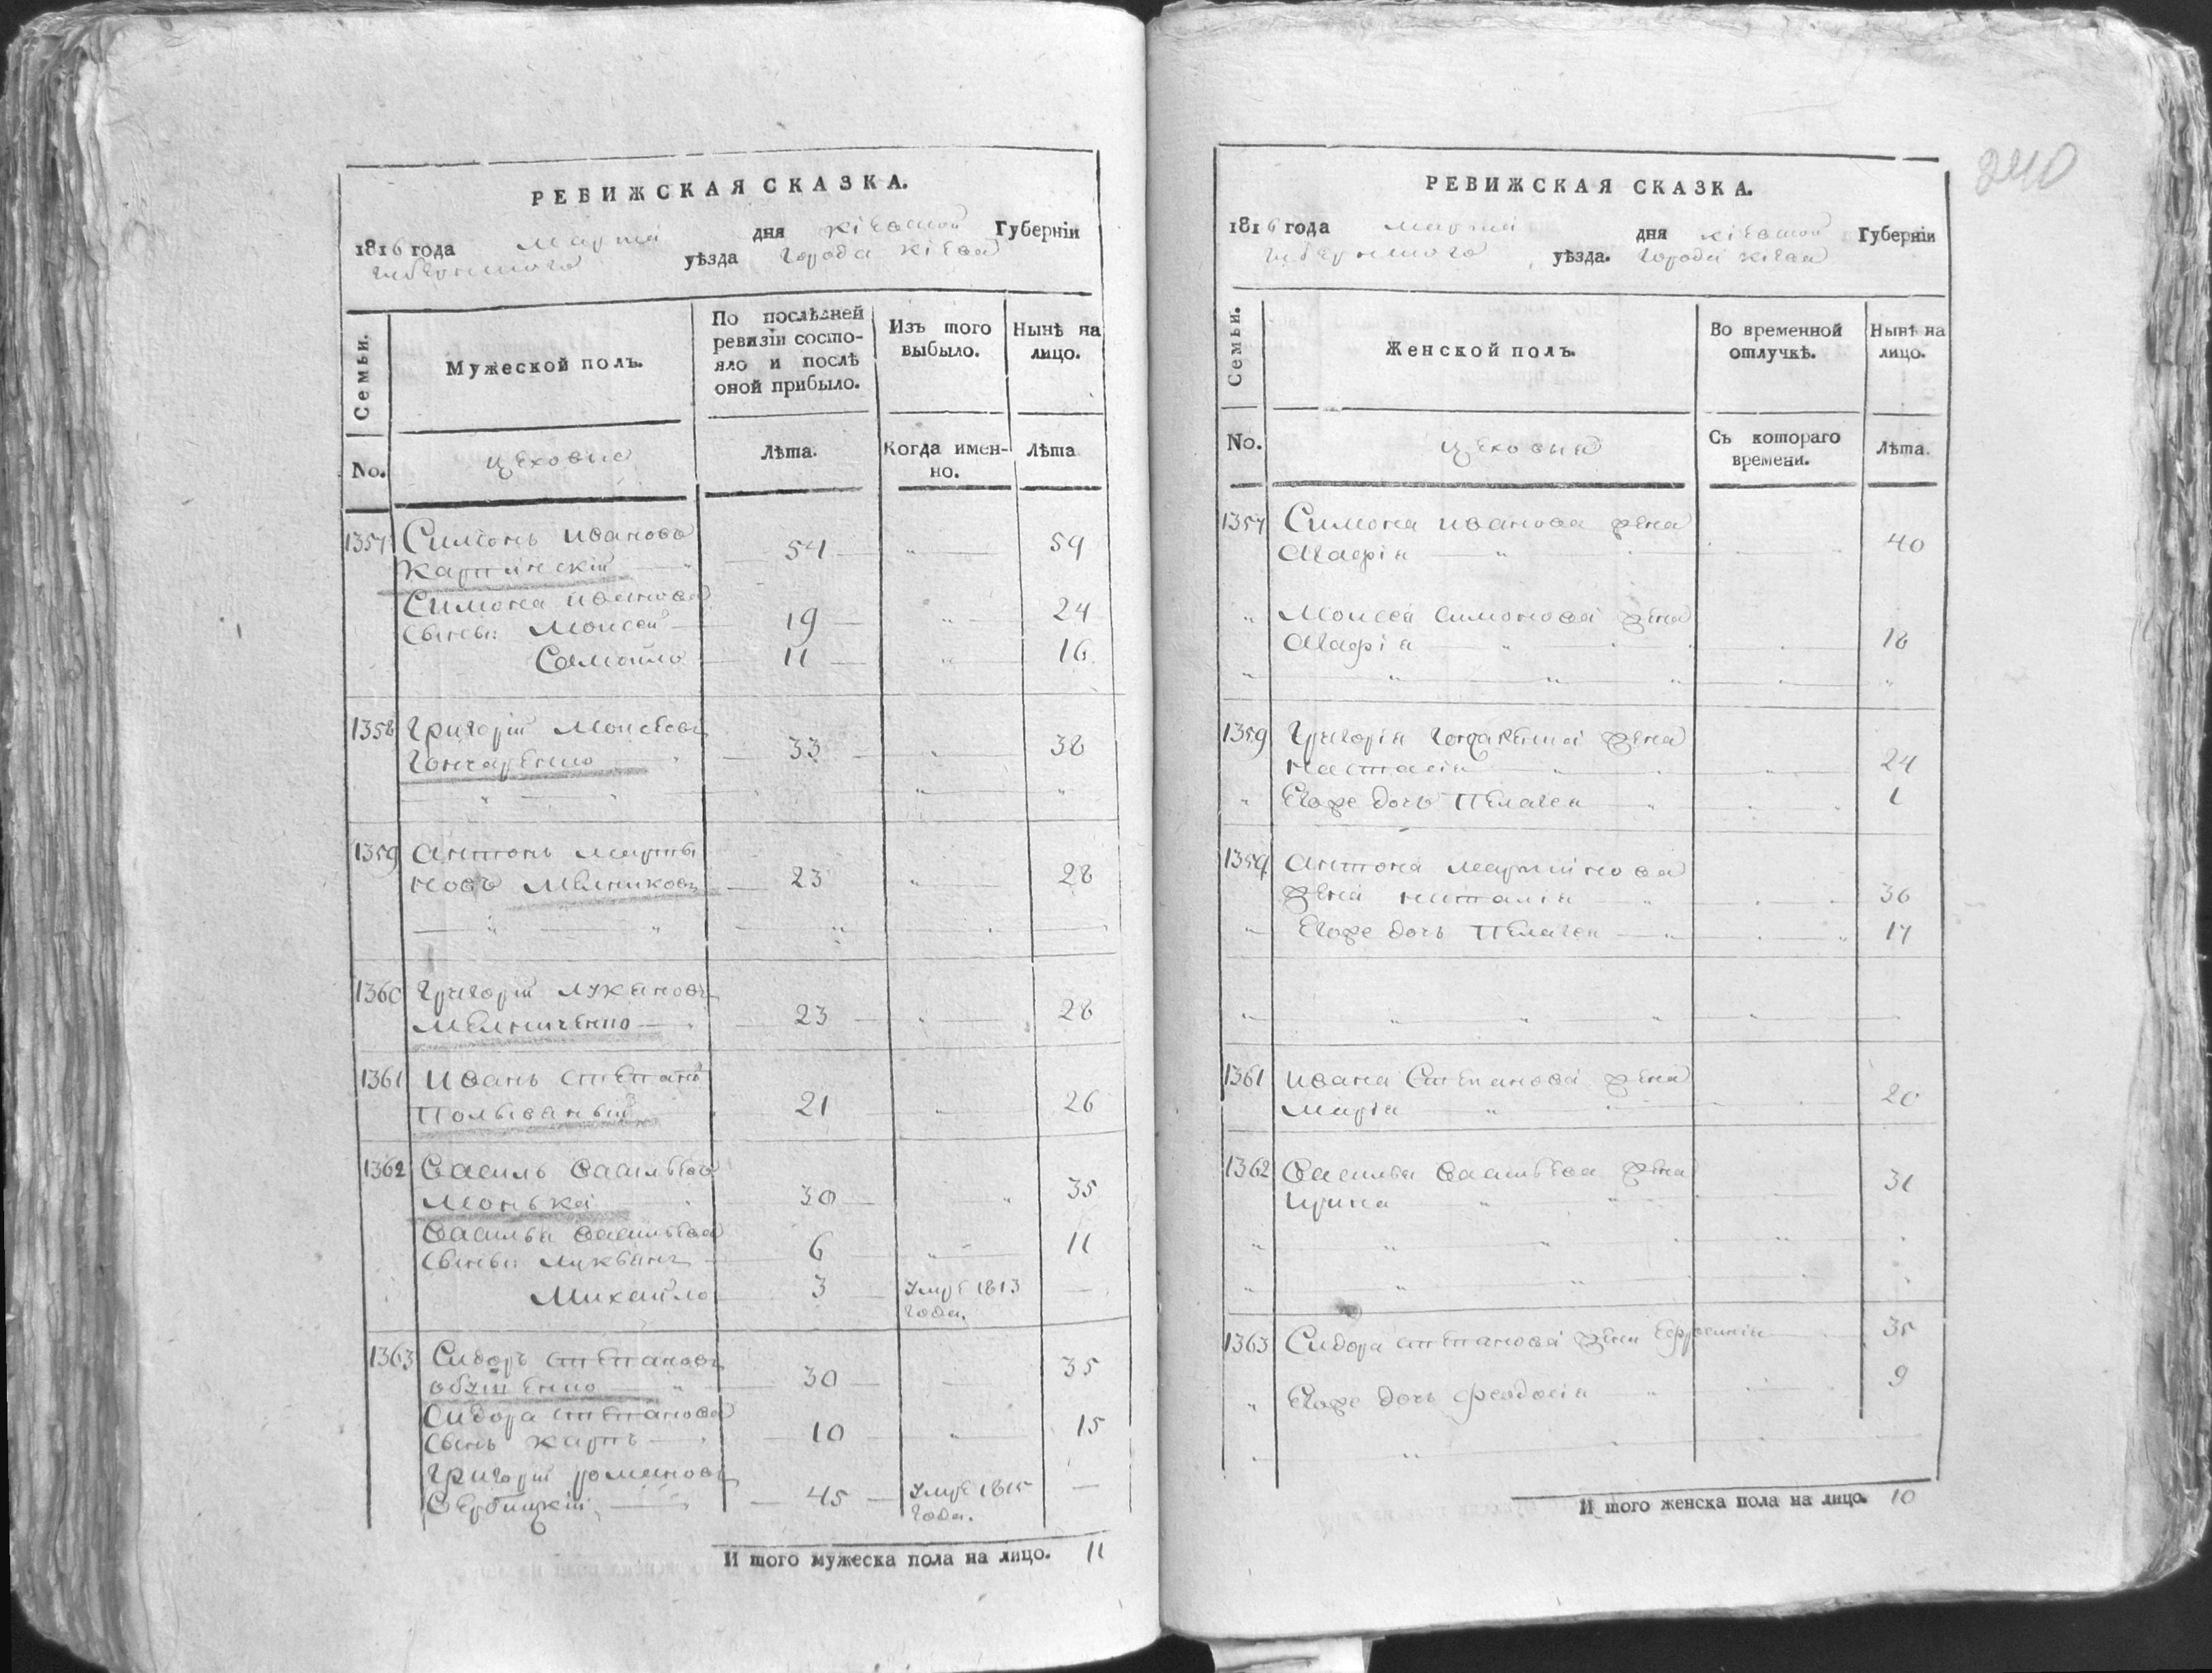 РЕВИЖСКАЯ СКАЗКА.
1816 года марта дня Кіевской Губерніи
губернскаго уѣзда города Кіева
Семьи.
Мужеской полъ.
По послѣдней ревизіи состо-
яло и послѣ
оной прибыло.
Изъ того
выбыло.
Нынѣ на
лицо.
No.
цеховые
Лѣта.
Когда имен-
но.
Лѣта
1357 Симонъ Ивановъ
54 59
Симона Иванова
сыны: Моисей 19 24
Самойло 11 16
1358 Григорій Моисеевъ
Гончаренко 33 38
1359 Антонъ Марты
новъ Мелниковъ 23 28
1360 Григорій Лукьяновъ
Мелниченко 23 28
1361 Иванъ Степановъ
21 26
1362 Василь Васильевъ
Монька 30 35
Василья Васильева
сыны: Лукьянъ 6 11
Михайло 3 Умре 1813
года.
1363 Сидоръ Степановъ
30 35
Сидора Степанова
сынъ Карпъ 10 15
Григорій Романовъ
Вербицкій 45 Умре 1815
года.
И того мужеска пола на лицо. 11
240
РЕВИЖСКАЯ СКАЗКА.
1816 года марта дня Кіевской Губерніи
губернскаго уѣзда. города Кіева
Семьи.
Женской полъ.
Во временной
отлучкѣ.
Нынѣ на
лицо.
No.
цеховыя
Съ котораго
времени.
Лѣта.
1357 Симона Иванова жена
Марія 40
Моисея Симонова жена
Марія 18
1359 Григорія Гончаренка жена
Настасія 24
Егоже дочь Пелагея 1
1359 Антона Мартинова
жена Наталія 36
Егоже дочь Пелагея 17
1361 Ивана Степанова жена
Марія 20
1362 Василья Васильева жена
Ирина 31
1363 Сидора Степанова жена Ефросинія 35
Егоже дочь Феодосія 9
И того женска пола на лицо. 10